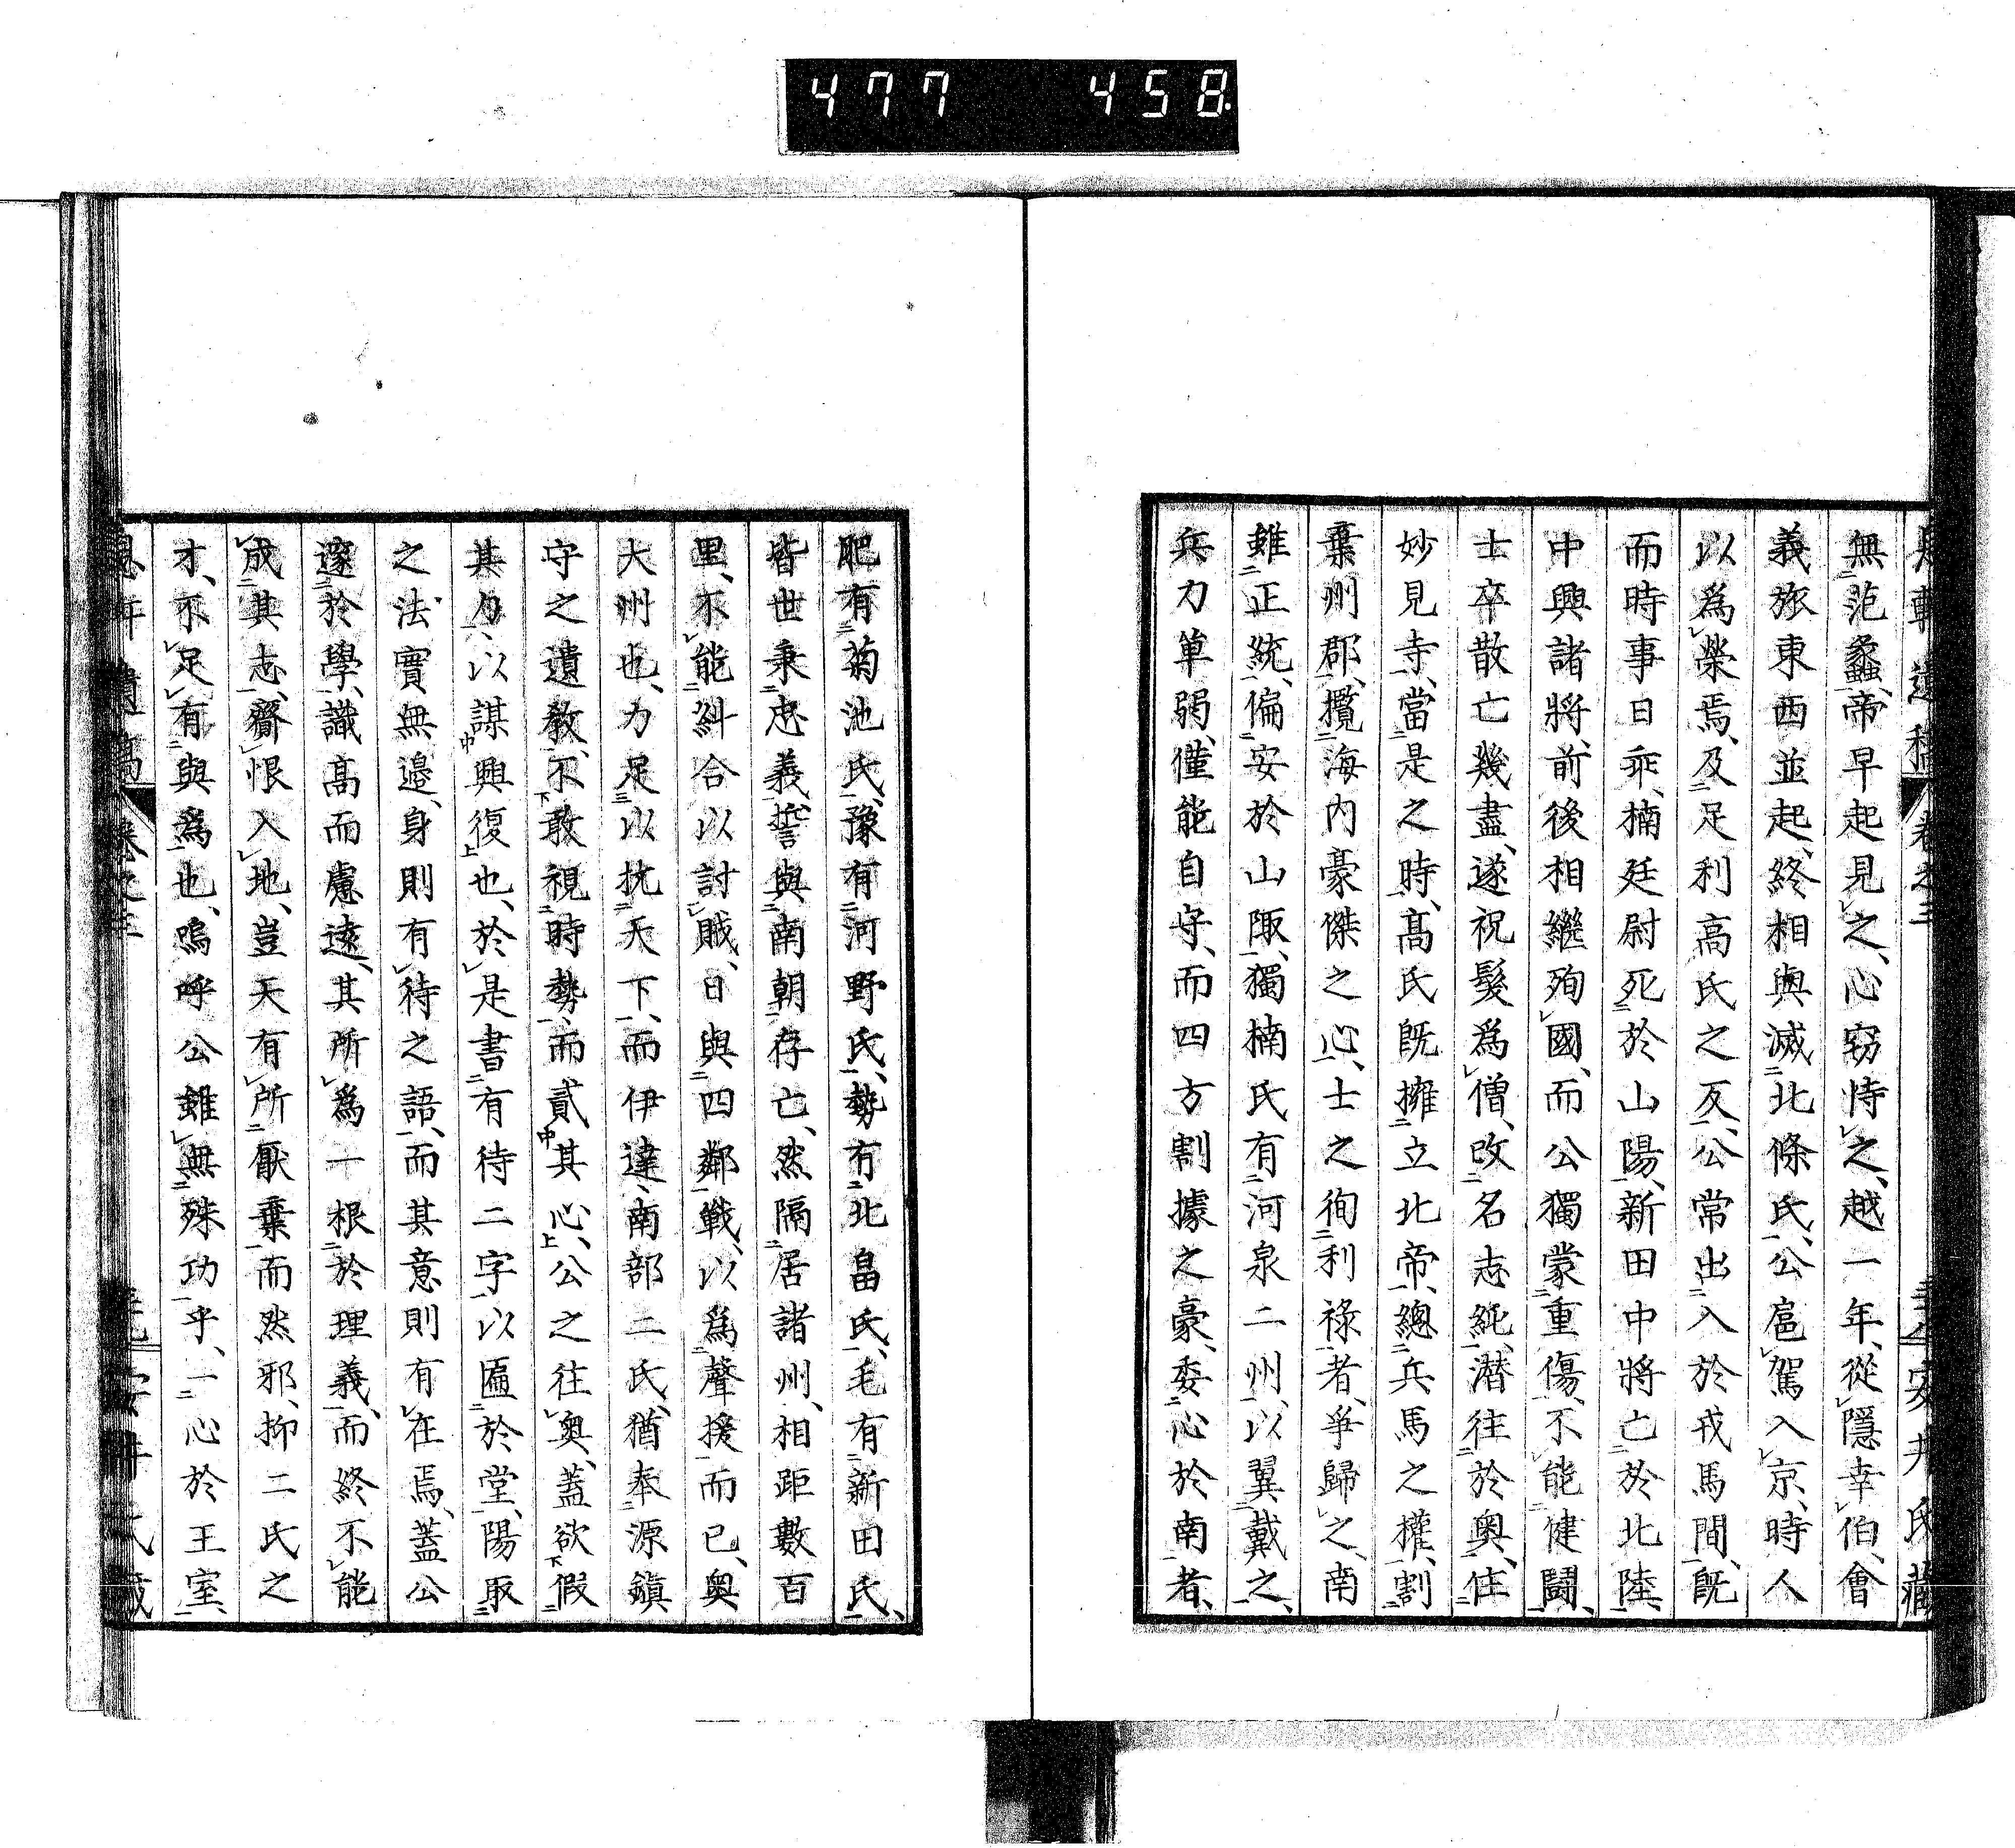 477 458
無范蠡、帝早起見之、心窃恃之、越一年、從隱幸伯、會
義旅東西並起、終相與滅北條氏、公扈駕入京、時人
以爲榮焉、及足利高氏之反、公常出入於戎馬間、既
而時事日乖、楠廷尉死於山陽、新田中將亡於北陸、
中興諸將、前後相繼殉國、而公獨蒙重傷、不能健鬪、
士卒散亡幾盡、遂祝髮爲僧、改名志純、潜往於奧、住
妙見寺、當是之時、高氏既擁立北帝、總兵馬之權、割
棄州郡、攬海内豪傑之心、士之徇利祿者、爭歸之、南
雖正統、偏安於山陬、獨楠氏有河泉二州、以翼戴之、
兵力單弱、僅能自守、而四方割據之豪、委心於南者、
肥有菊池氏、豫有河野氏、勢有北畠氏、毛有新田氏、
皆世秉忠義、誓與南朝存亡、然隔居諸州、相距數百
里、不能糾合以討賊、日與四鄰戰、以爲聲援而已、奧
大州也、力足以抗天下、而伊達、南部二氏、猶奉源鎭
守之遺教、不敢視時勢、而貳其心、公之往奧、蓋欲假
其力、以謀興復也、於是書有待二字、以匾於堂、陽取
之法、實無邊、身則有待之語、而其意則有在焉、蓋公
邃於學、識高而慮遠、其所爲一根於理義、而終不能
成其志、齎恨入地、豈天有所厭棄而然邪、抑二氏之
才、不足有與爲也、嗚呼公雖無殊功乎、一心於王室、